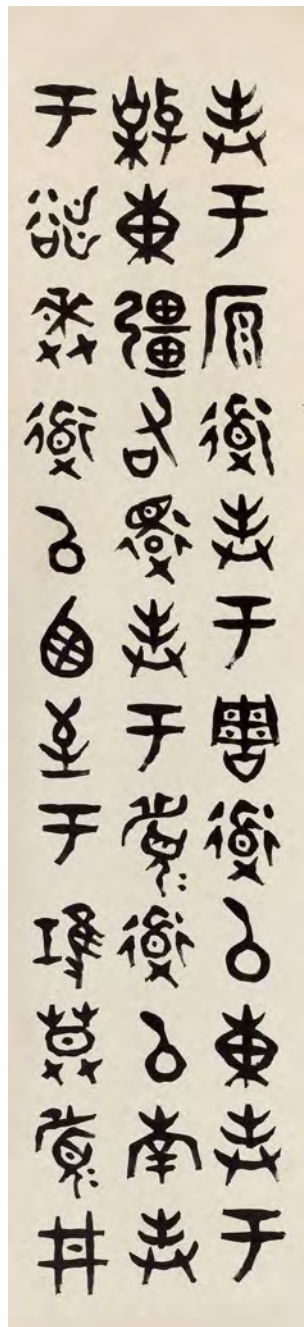 封于原道封于周道以東封于
東疆右還封于眉道以南封
于逨道以西至于鳿莫眉井